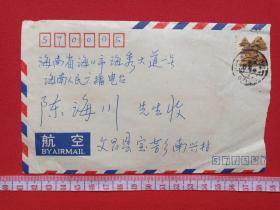 570005
海南省海口市海秀大道一号
海南人民广播电台
陈海川 先生收
航空
BY AIRMAIL
文昌县宝芳乡南兴村